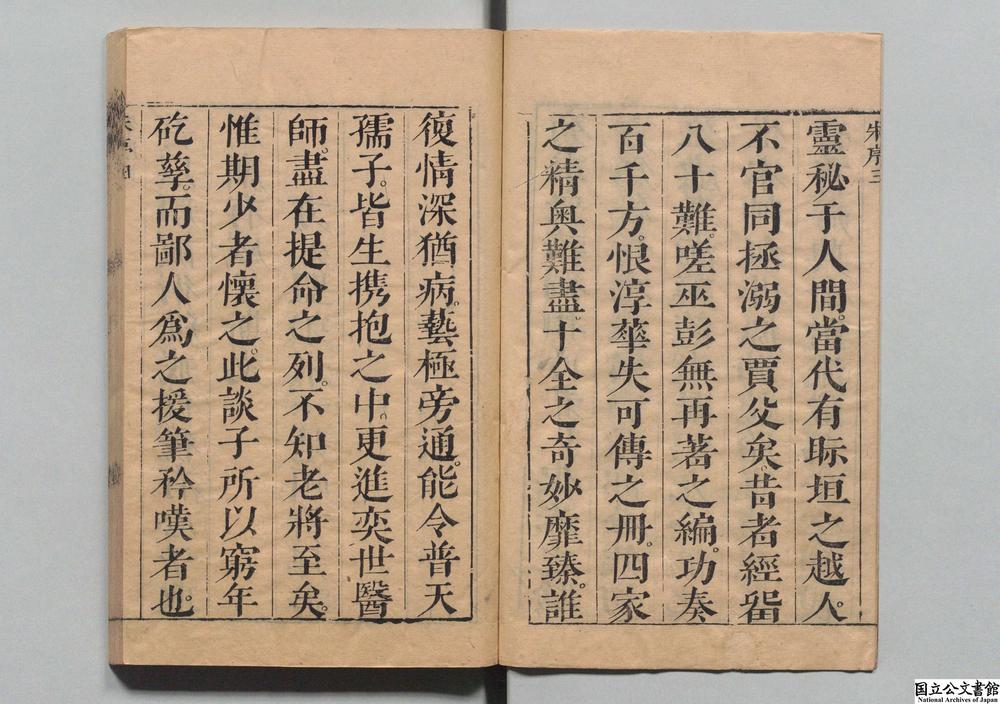 朱序三
靈秘于人間。當代有眎垣之越人。
不官同拯溺之賈父矣。昔者經畱
八十難。嗟巫彭無再著之編。功奏
百千方。恨淳華失可傳之冊。四家
之精奧難盡。十全之奇妙靡臻。誰
復情深猶病。藝極旁通。能令普天
孺子。皆生携抱之中。更進奕世醫
師。盡在提命之列。不知老將至矣。
惟期少者懷之。此談子所以窮年
矻孳。而鄙人為之援筆矜嘆者也。
朱序四
国立公文書館
National Archives of Japan